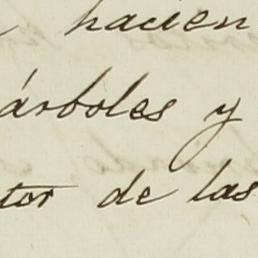 hacien
árboles y
tor de las